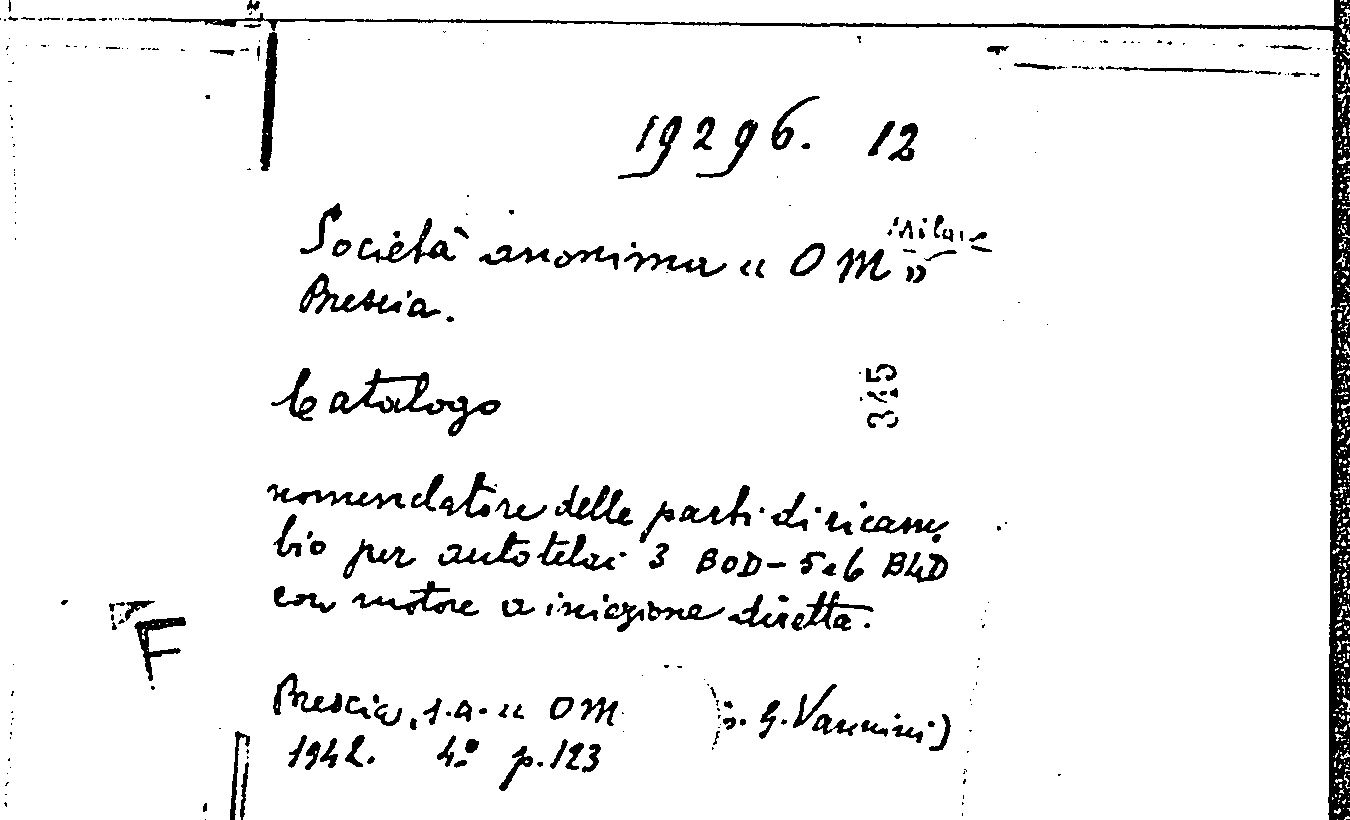 19296. 12
Milano
Società anonima « OM »
Brescia.
345
Catalogo
nomenclatore delle parti di ricam
bio per autotelai 3 BOD - 5 e 6 BLD
con motore a iniezione diretta.
F
Brescia, s.a. « OM ) s. G. Vannini)
1942. 4º p. 123